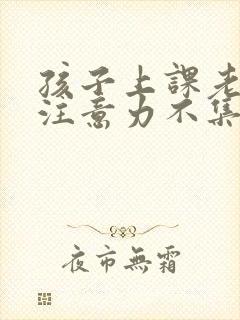 孩子上課老
注意力不集
夜市無霜